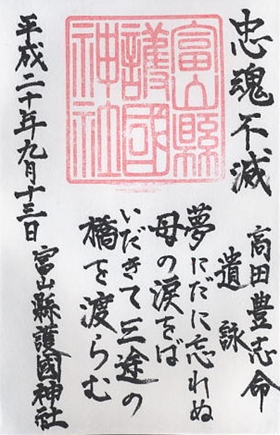 忠魂不滅
高田豊志命
遺詠
夢にだに忘れぬ
母の涙をば
いだきて三途の
橋を渡らむ
富山縣
護國
神社
平成二十年九月十三日
富山縣護國神社